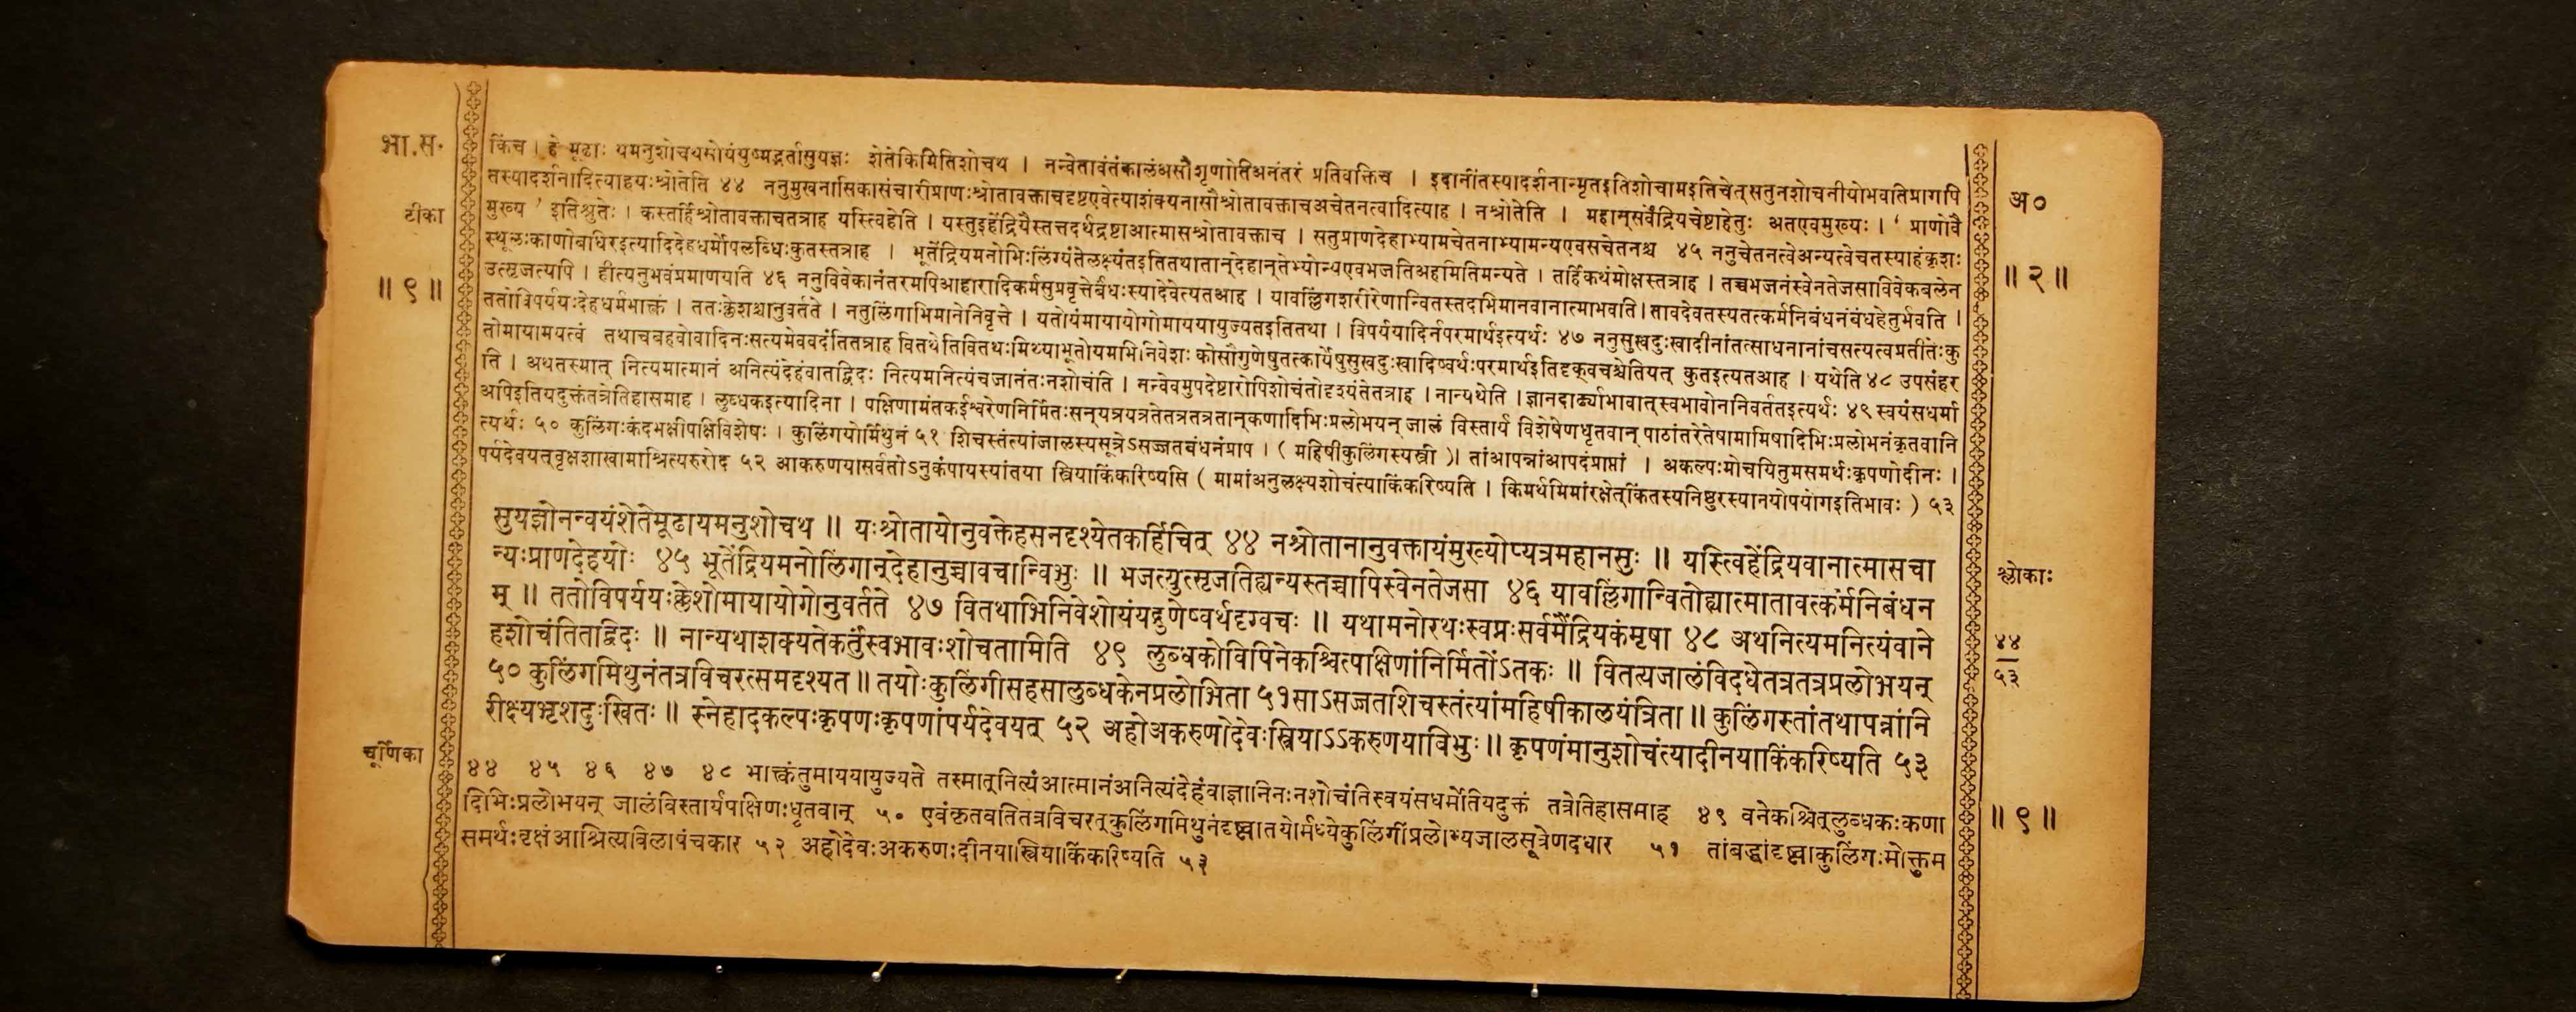 भा.स.
टीका
॥ ९ ॥
किंच । हे मूढाः यमनुशोचथसोयंयुष्मद्भर्तासुयज्ञः शेतेकिमितिशोचथ । नन्वेतावंतंकालंअसौशृणोतिअनंतरं प्रतिवक्तिच । इदानींतस्यादर्शनान्मृतइतिशोचामइतिचेत्सतुनशोचनीयोभवतिप्रागपि
तस्यादर्शनादित्याहयःश्रोतेति ४४ ननुमुखनासिकासंचारीप्राणःश्रोतावक्ताचदृष्टएवेत्याशंक्यनासौश्रोतावक्ताचअचेतनत्वादित्याह । नश्रोतेति । महान्सर्वेंद्रियचेष्टाहेतुः अतएवमुख्यः । ‘ प्राणोवै
मुख्य ’ इतिश्रुतेः । कस्तर्हिश्रोतावक्ताचतत्राह यस्त्विहेति । यस्तुइहेंद्रियैस्तत्तदर्थद्रष्टाआत्मासश्रोतावक्ताच । सतुप्राणदेहाभ्यामचेतनाभ्यामन्यएवसचेतनश्च ४५ ननुचेतनत्वेअन्यत्वेचतस्याहंकृशः
स्थूलःकाणोबधिरइत्यादिदेहधर्मोपलब्धिःकुतस्तत्राह । भूतेंद्रियमनोभिःलिंग्यंतेलक्ष्यंतइतितथातान्देहान्तेभ्योन्यएवभजतिअहमितिमन्यते । तर्हिकथंमोक्षस्तत्राह । तच्चभजनंस्वेनतेजसाविवेकबलेन
उत्सृजत्यपि । हीत्यनुभवंप्रमाणयति ४६ ननुविवेकानंतरमपिआहारादिकर्मसुप्रवृत्तेर्बंधःस्यादेवेत्यतआह । यावल्लिंगशरीरेणान्वितस्तदभिमानवानात्माभवति।तावदेवतस्यतत्कर्मनिबंधनंबंधहेतुर्भवति ।
ततोविपर्ययःदेहधर्मभाक्त्वं । ततःक्लेशश्चानुवर्तते । नतुलिंगाभिमानेनिवृत्ते । यतोयंमायायोगोमाययायुज्यतइतितथा । विपर्ययादिर्नपरमार्थइत्यर्थः ४७ ननुसुखदुःखादीनांतत्साधनानांचसत्यत्वप्रतीतेःकु
तोमायामयत्वं तथाचबहवोवादिनःसत्यमेववदंतितत्राह वितथेतिवितथःमिथ्याभूतोयमभिनिवेशः कोसौगुणेषुतत्कार्येषुसुखदुःखादिष्वर्थःपरमार्थइतिदृक्वचश्चेतियत् कुतइत्यतआह । यथेति ४८ उपसंहर
ति । अथतस्मात् नित्यमात्मानं अनित्यंदेहंवातद्विदः नित्यमनित्यंचजानंतःनशोचंति । नन्वेवमुपदेष्टारोपिशोचंतोदृश्यंतेतत्राह । नान्यथेति ।ज्ञानदार्ढ्याभावात्स्वभावोननिवर्ततइत्यर्थः ४९ स्वयंसधर्मा
अपिइतियदुक्तंतत्रेतिहासमाह । लुब्धकइत्यादिना । पक्षिणामंतकईश्वरेणनिर्मितःसन्यत्रयत्रतेतत्रतत्रतान्कणादिभिःप्रलोभयन् जालं विस्तार्य विशेषेणधृतवान् पाठांतरेतेषामामिषादिभिःप्रलोभनंकृतवानि
त्यर्थः ५० कुलिंगःकंदभक्षीपक्षिविशेषः । कुलिंगयोर्मिथुनं ५१ शिचस्तंत्यांजालस्यसूत्रेऽसज्जतबंधनंप्राप । ( महिषीकुलिंगस्यस्त्री )। तांआपन्नांआपदंप्राप्तां । अकल्पःमोचयितुमसमर्थःकृपणोदीनः ।
पर्यदेवयत्वृक्षशाखामाश्रित्यरुरोद ५२ आकरुणयासर्वतोऽनुकंपायस्यांतया स्त्रियाकिंकरिष्यसि ( मामांअनुलक्ष्यशोचंत्याकिंकरिष्यति । किमर्थमिमांरक्षेत्किंतस्यनिष्ठुरस्यानयोपयोगइतिभावः ) ५३
सुयज्ञोनन्वयंशेतेमूढायमनुशोचथ ॥ यःश्रोतायोनुवक्तेहसनदृश्येतकर्हिचित् ४४ नश्रोतानानुवक्तायंमुख्योप्यत्रमहानसुः ॥ यस्त्विहेंद्रियवानात्मासचा
न्यःप्राणदेहयोः ४५ भूतेंद्रियमनोलिंगान्देहानुच्चावचान्विभुः ॥ भजत्युत्सृजतिह्यन्यस्तच्चापिस्वेनतेजसा ४६ यावल्लिंगान्वितोह्यात्मातावत्कर्मनिबंधन
म् ॥ ततोविपर्ययःक्लेशोमायायोगोनुवर्तते ४७ वितथाभिनिवेशोयंयद्गुणेष्वर्थदृग्वचः ॥ यथामनोरथःस्वप्नःसर्वमैंद्रियकंमृषा ४८ अथनित्यमनित्यंवाने
हशोचंतितद्विदः ॥ नान्यथाशक्यतेकर्तुंस्वभावःशोचतामिति ४९ लुब्धकोविपिनेकश्चित्पक्षिणांनिर्मितोंऽतकः ॥ वितत्यजालंविदधेतत्रतत्रप्रलोभयन्
५० कुलिंगमिथुनंतत्रविचरत्समदृश्यत ॥ तयोःकुलिंगीसहसालुब्धकेनप्रलोभिता ५१साऽसज्जतशिचस्तंत्यांमहिषीकालयंत्रिता ॥ कुलिंगस्तांतथापन्नांनि
रीक्ष्यभृशदुःखितः ॥ स्नेहादकल्पःकृपणःकृपणांपर्यदेवयत् ५२ अहोअकरुणोदेवःस्त्रियाऽऽकरुणयाविभुः ॥ कृपणंमानुशोचंत्यादीनयाकिंकरिष्यति ५३
चूर्णिका
४४ ४५ ४६ ४७ ४८ भाक्त्वंतुमाययायुज्यते तस्मात्नित्यंआत्मानंअनित्यंदेहंवाज्ञानिनःनशोचंतिस्वयंसधर्मेतियदुक्तं तत्रेतिहासमाह ४९ वनेकश्चित्लुब्धकःकणा
दिभिःप्रलोभयन् जालंविस्तार्यपक्षिणःधृतवान् ५० एवंकृतवतितत्रविचरत्कुलिंगमिथुनंदृष्ट्वातयोर्मध्येकुलिंगींप्रलोभ्यजालसूत्रेणदधार ५१ तांबद्धांदृष्ट्वाकुलिंगःमोक्तुम
समर्थःवृक्षंआश्रित्यविलापंचकार ५२ अहोदेवःअकरुणःदीनयास्त्रियाकिंकरिष्यति ५३
अ०
॥ २ ॥
श्लोकाः
४४
५३
॥ ९ ॥